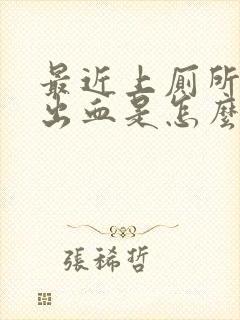 最近上厕所
出血是怎麼
張稀哲